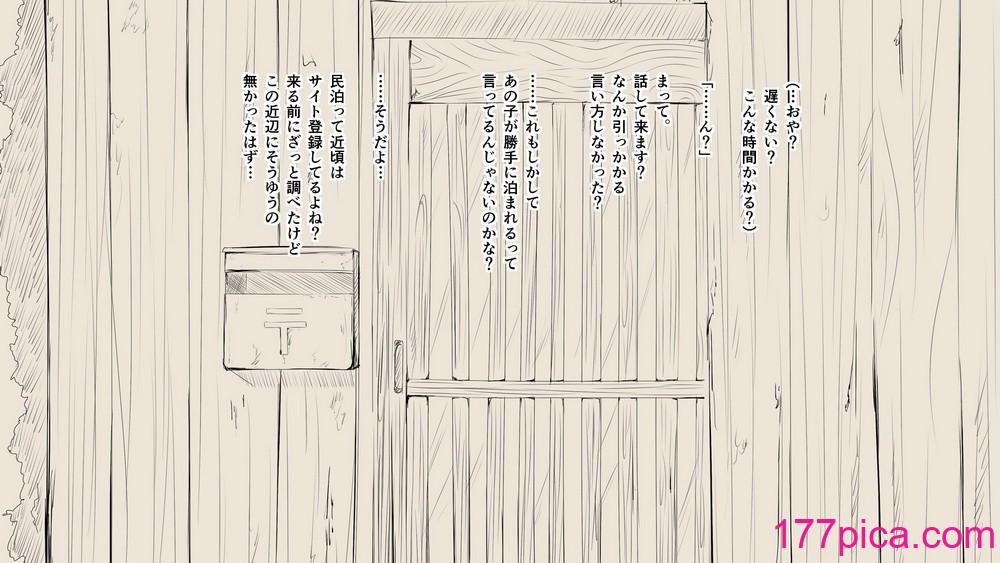 (…おや?
遅くない?
こんな時間かかる?)
「……ん?」
まって。
話して来ます?
なんか引っかかる
言い方じなかった?
……これもしかして
あの子が勝手に泊まれるって
言ってるんじゃないのかな?
……そうだよ…
民泊って近頃は
サイト登録してるよね?
来る前にざっと調べたけど
この近辺にそうゆうの
無かったはず…
〒
177pica.com